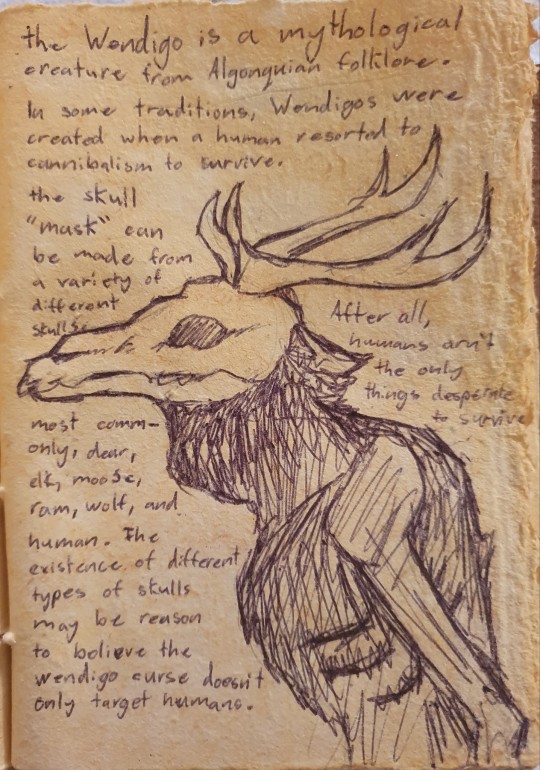 the Wendigo is a mythological
creature from Algonquian folklore.
In some traditions, Wendigos were
created when a human resorted to
cannibalism to survive.
the skull
"mask" can
be made from
a variety of
different
skulls.
most comm-
only, dear,
elk, moose,
ram, wolf, and
human. The
existence of different
types of skulls
may be reason
to believe the
wendigo curse doesn't
only target humans.
After all,
humans arn't
the only
things desperate
to survive